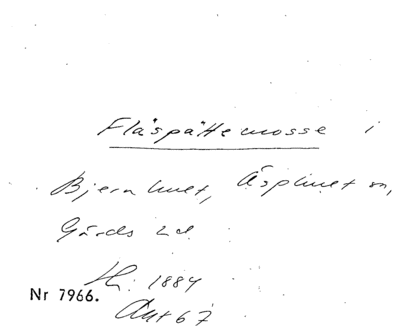 Fläspättemosse i
Bjernhult, Äsphult sn,
Gärds hd
H: 1884
Nr 7966.
Ant 67